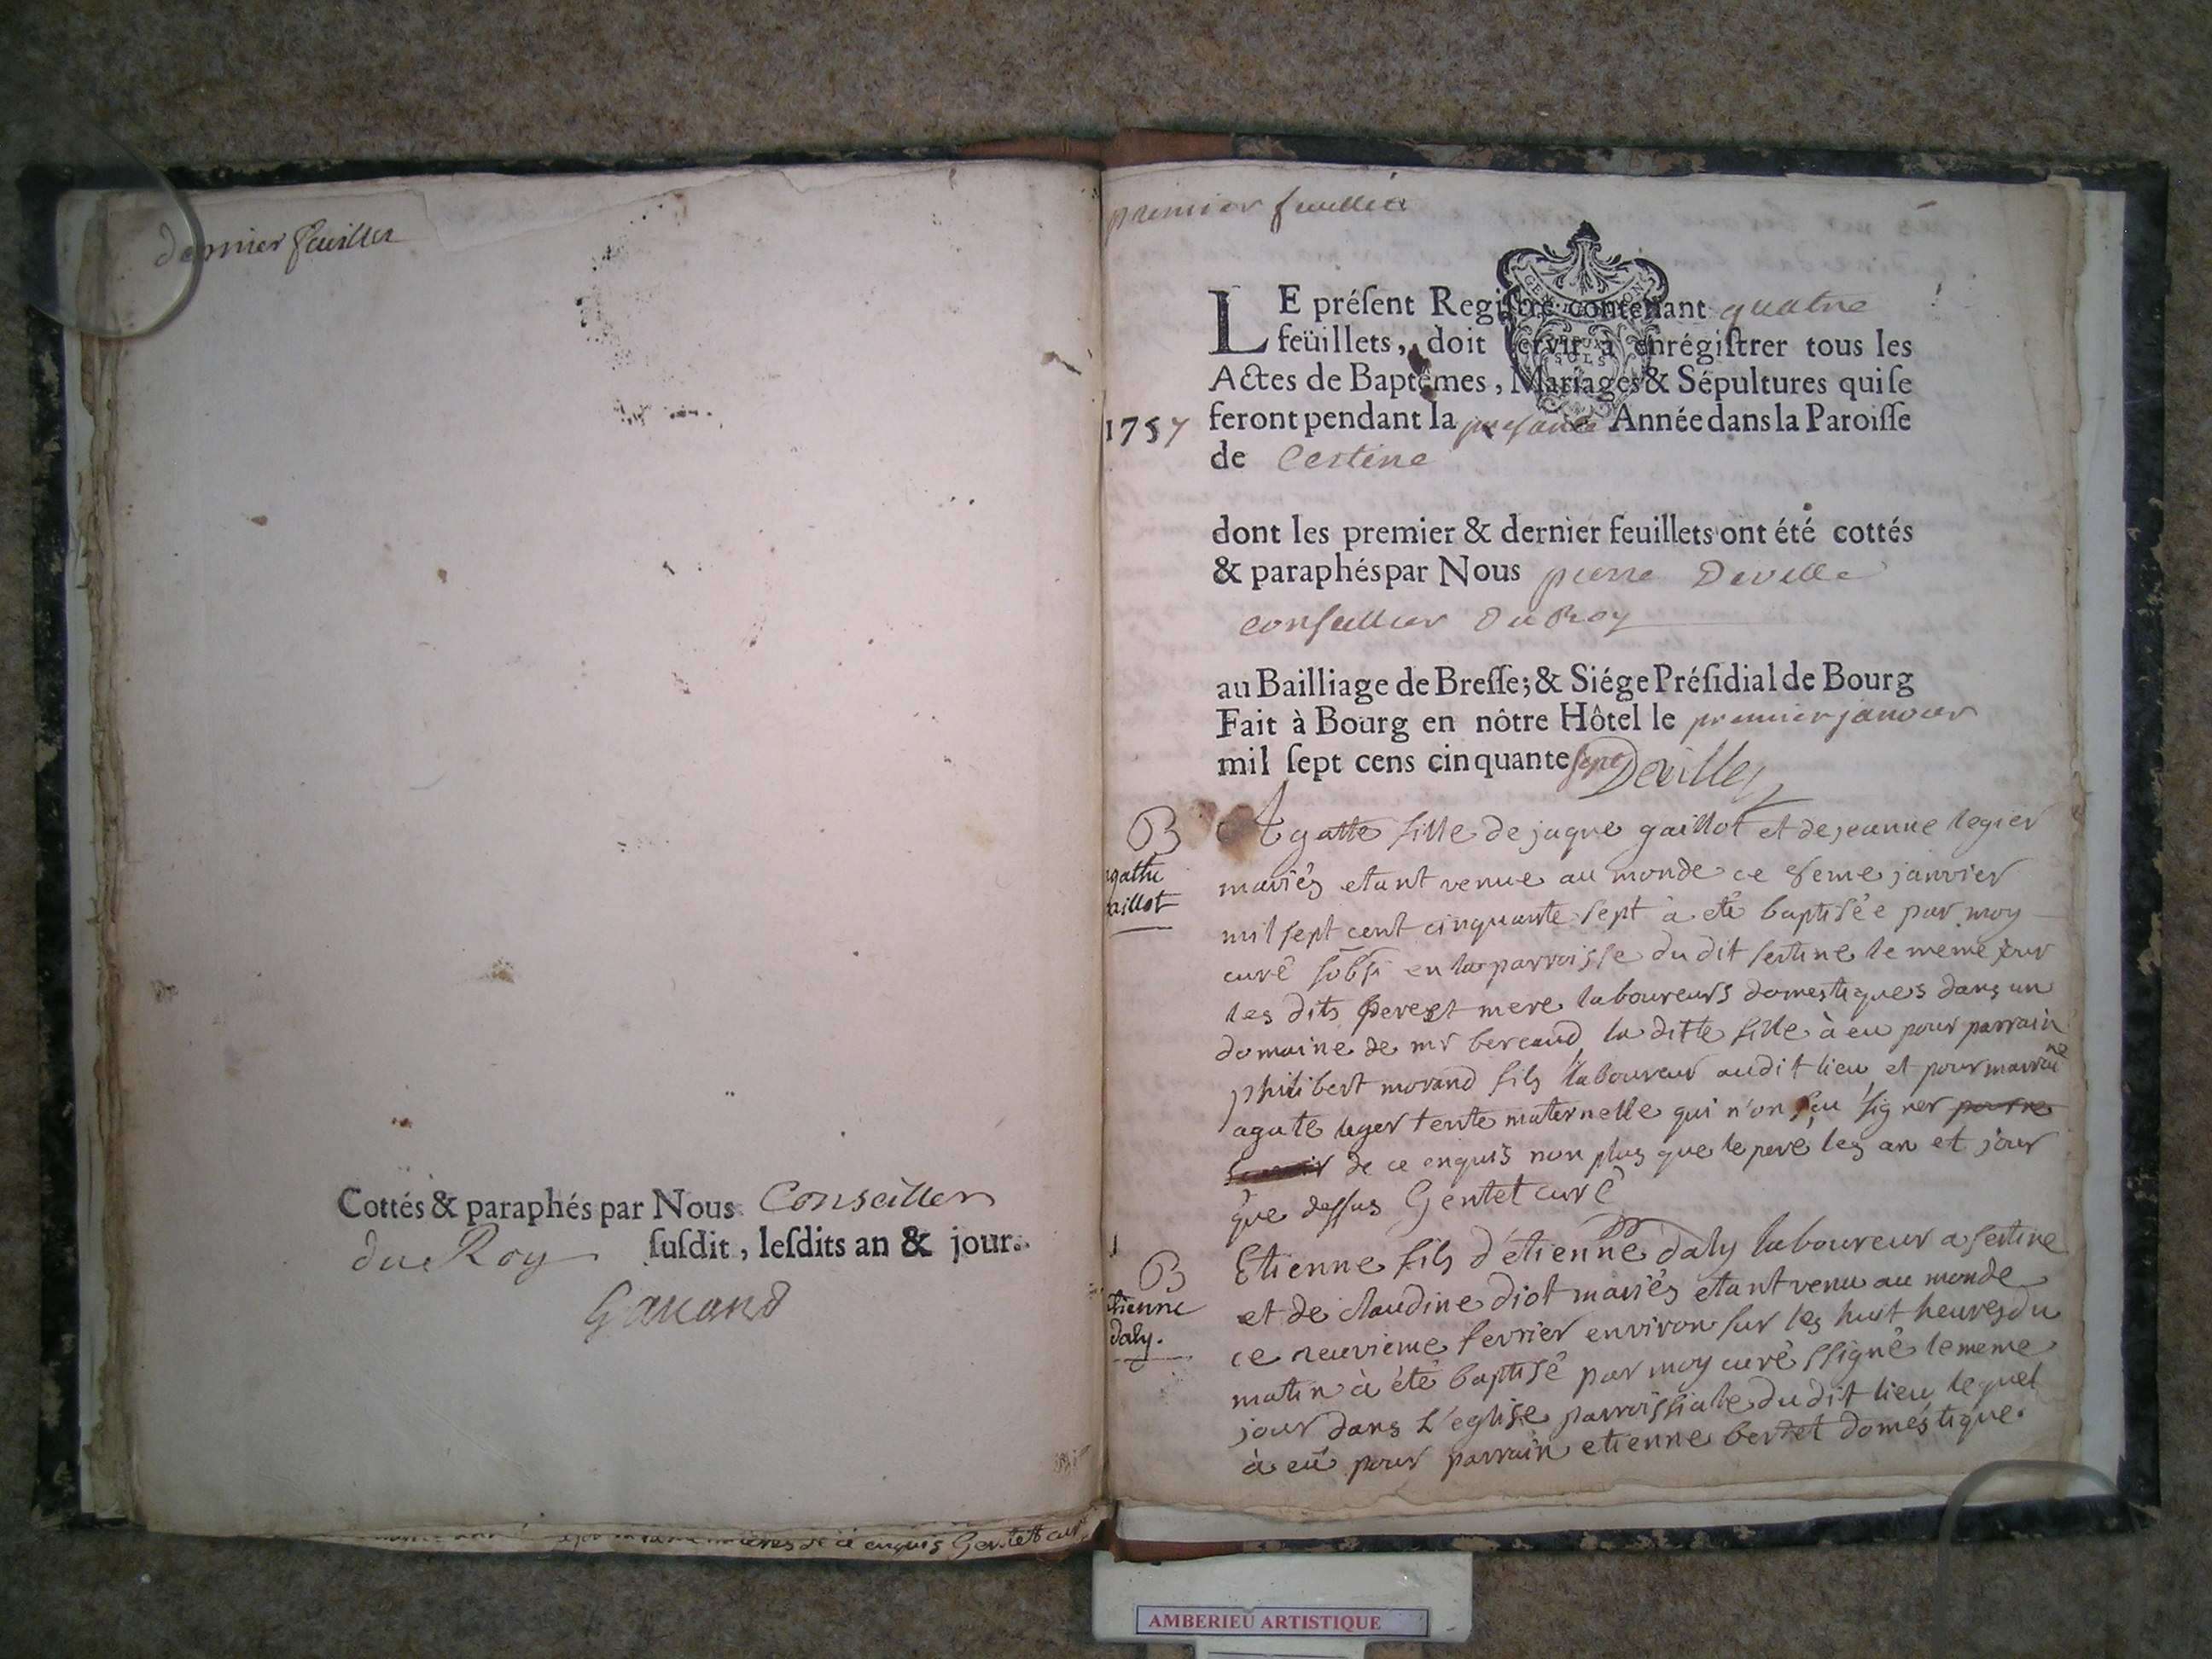 dernier feuillet
Cottés & paraphés par Nous Conseiller
du Roy ſuſdit, leſdits an & jour.
de ce enquis Gentet curé
premier feuillet
LE préſent Regiſtre contenant quatre
feüillets, doit ſervir à enrégiſtrer tous les
Actes de Baptêmes, Mariages & Sépultures qui ſe
1757 feront pendant la presante Année dans la Paroiſſe
de Certine
dont les premier & dernier feuillets ont été cottés
& paraphés par Nous pierre Deville
conseillier Du Roy
au Bailliage de Breſſe; & Siége Préſidial de Bourg
Fait à Bourg en nôtre Hôtel le premier janvier
mil ſept cens cinquante sept Deville
B
agathe
gaillot
Agatte fille de jaque gaillot et de jeanne legier
mariés etant venue au monde ce 8eme janvier
mil sept cent cinquante sept à eté baptisée par moy
curé sobsi en la parroisse du dit sertine le meme jour
les dits pere et mere laboureurs domestiques dans un
domaine de mr bercaud la ditte fille à eu pour parrain
philibert morand fils laboureur audit lieu et pour marraine
agate leger tente maternelle qui n'on sçu signer
de ce enquis non plus que le pere les an et jour
que dessus Gentet curé
B
etienne
daly.
Etienne fils d'étienne daly laboureur a sertine
et de claudine diot mariés etant venu au monde
ce neuvieme fevrier environ sur les huit heures du
matin à été baptisé par moy curé ssigné le meme
jour dans L'eglise parroissiale du dit lieu lequel
à eu pour parrain etienne bertet doméstique.
GEN. DEUX SOLS
AMBERIEU ARTISTIQUE